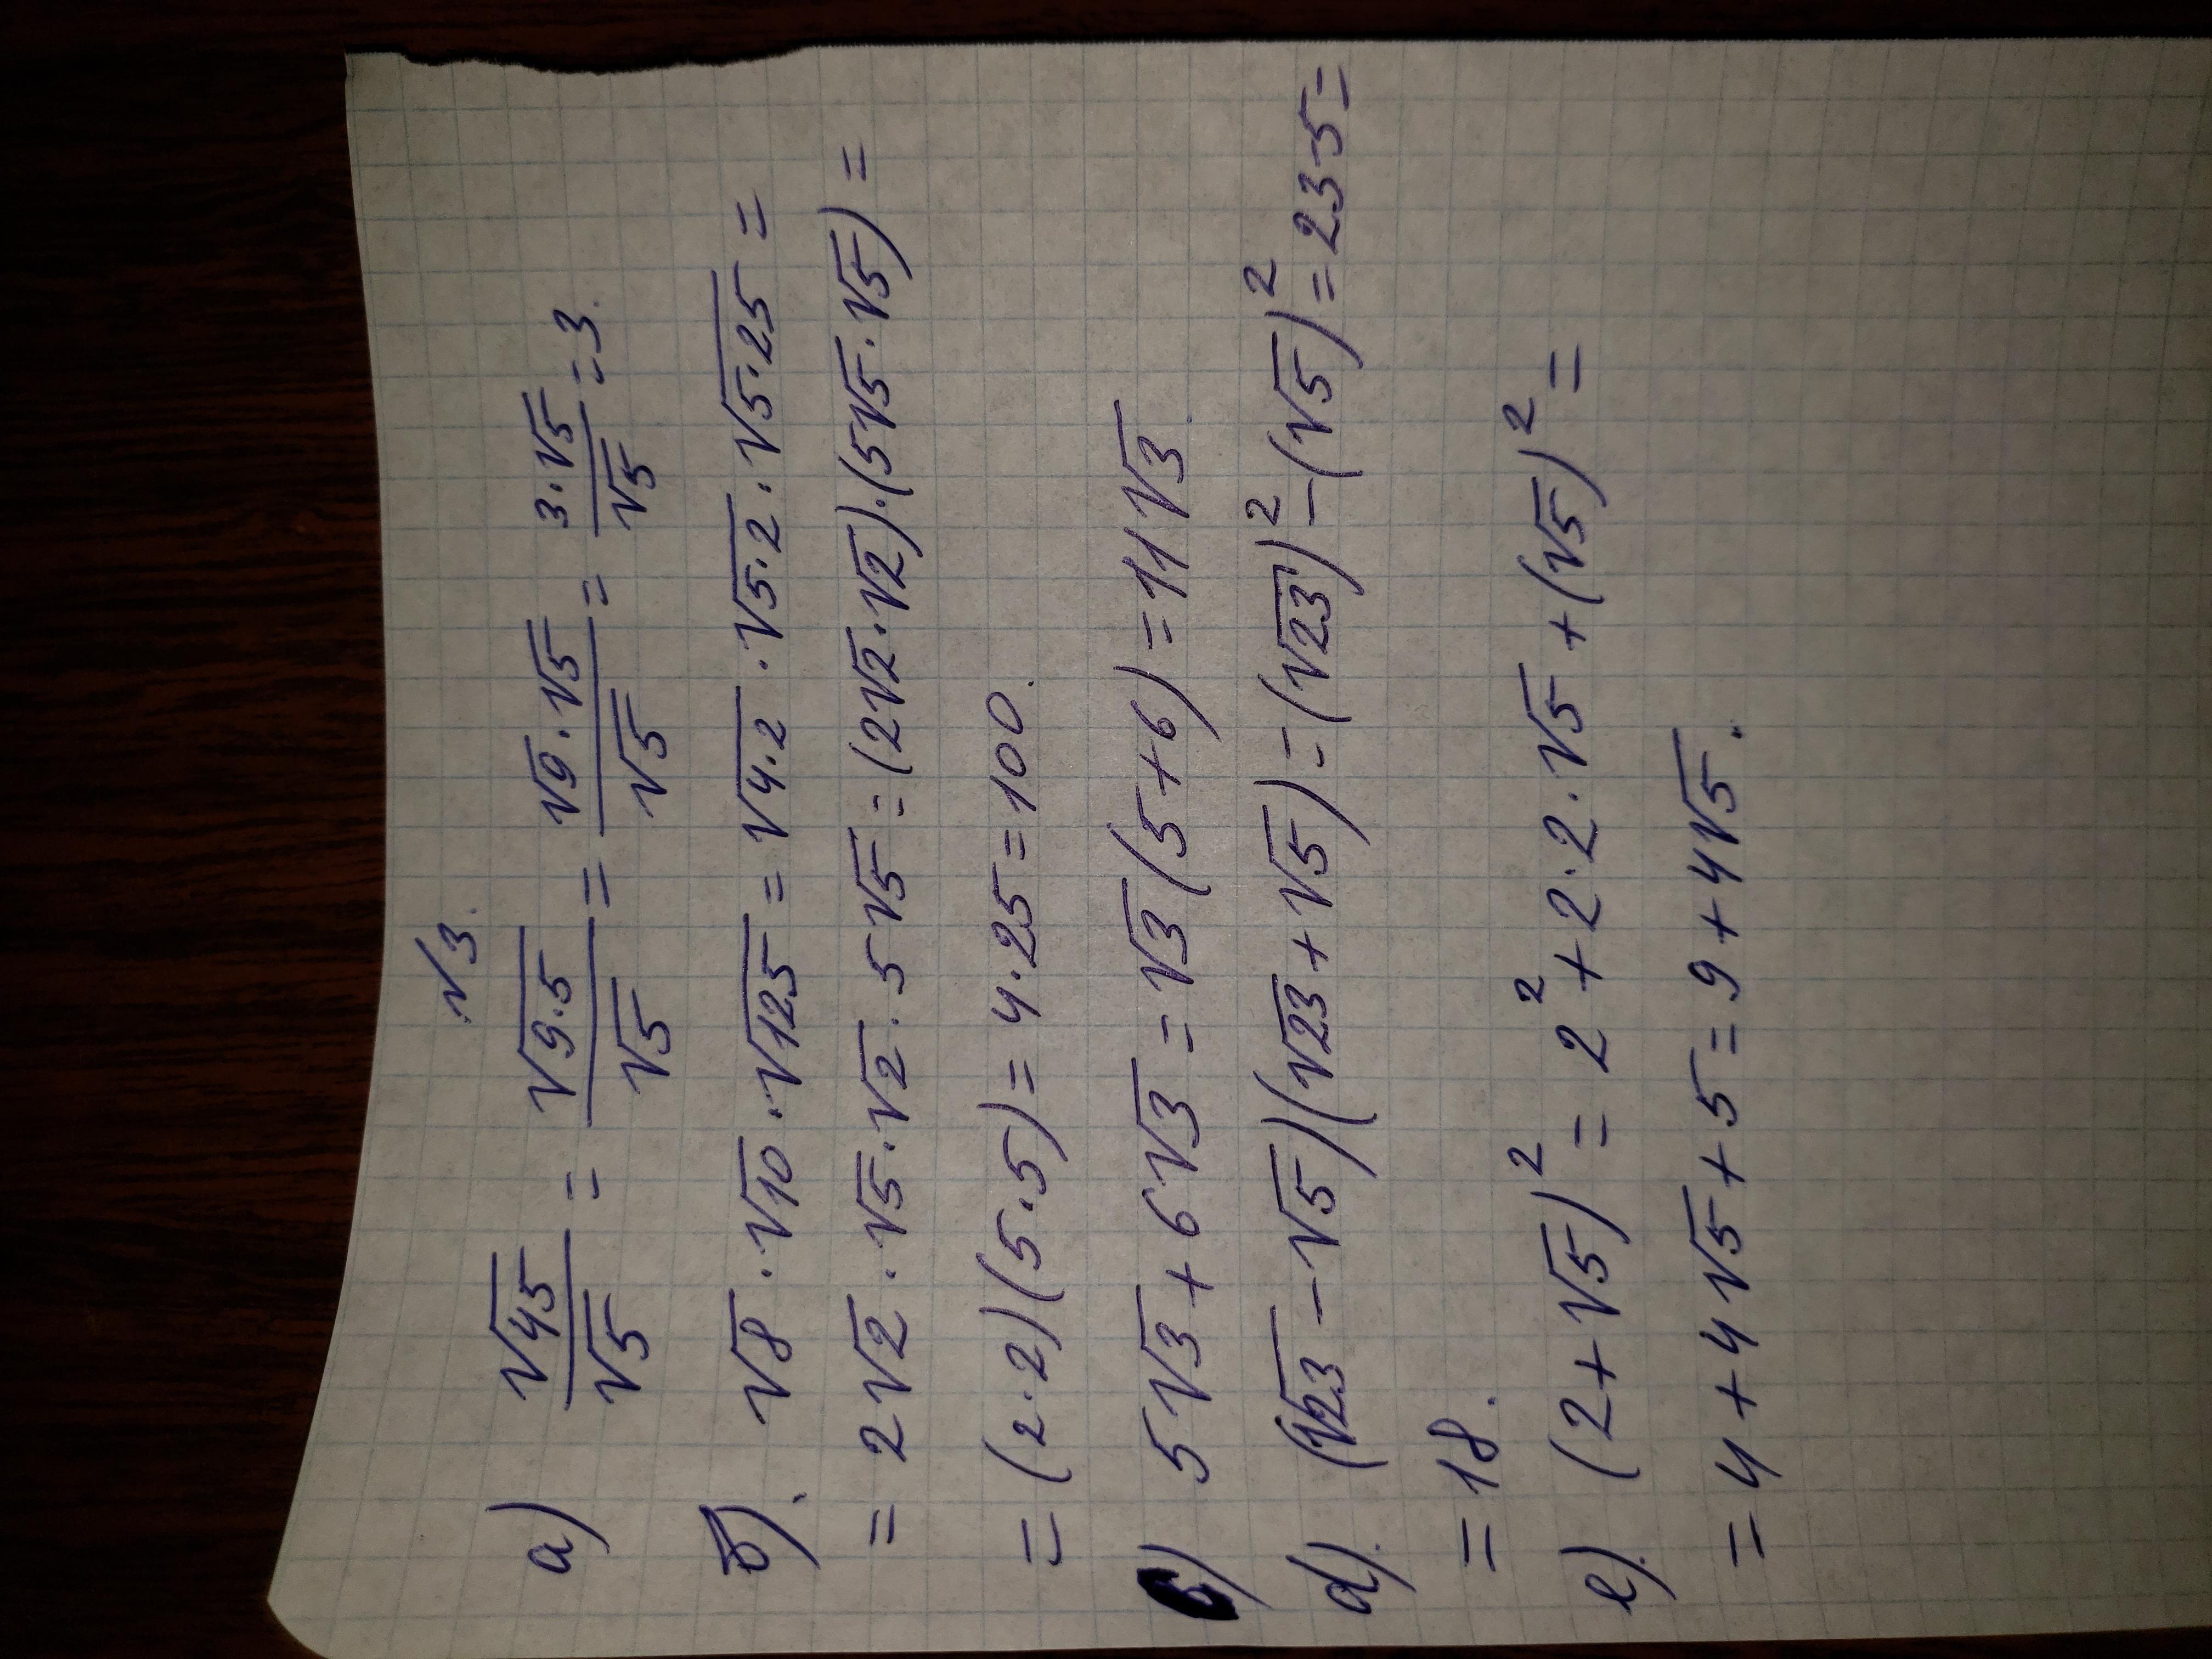 №3.
а) √45/√5 = √9·5/√5 = √9·√5/√5 = 3·√5/√5 = 3.
б). √8·√10·√125 = √4·2·√5·2·√5·25 =
= 2√2·√5·√2·5√5 = (2√2·√2)·(5√5·√5) =
= (2·2)(5·5) = 4·25 = 100.
в) 5√3 + 6√3 = √3(5+6) = 11√3.
d). (√23 - √5)(√23 + √5) = (√23)² - (√5)² = 23-5 =
= 18.
е). (2+√5)² = 2² + 2·2·√5 + (√5)² =
= 4 + 4√5 + 5 = 9 + 4√5.